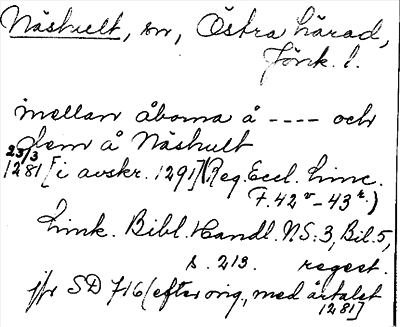 Näshult, sn, Östra härad,
Jönk. l.
mellan åboma å ---- och
dem å Näshult
23/3
1281 [i avskr. 1291] (Reg. Eccl. Linc.
F. 42 v - 43 r.)
Link. Bibl. Handl. NS: 3, Bil. 5,
s. 213. regest.
jfr SD 716 (efter orig, med årtalet
1281)